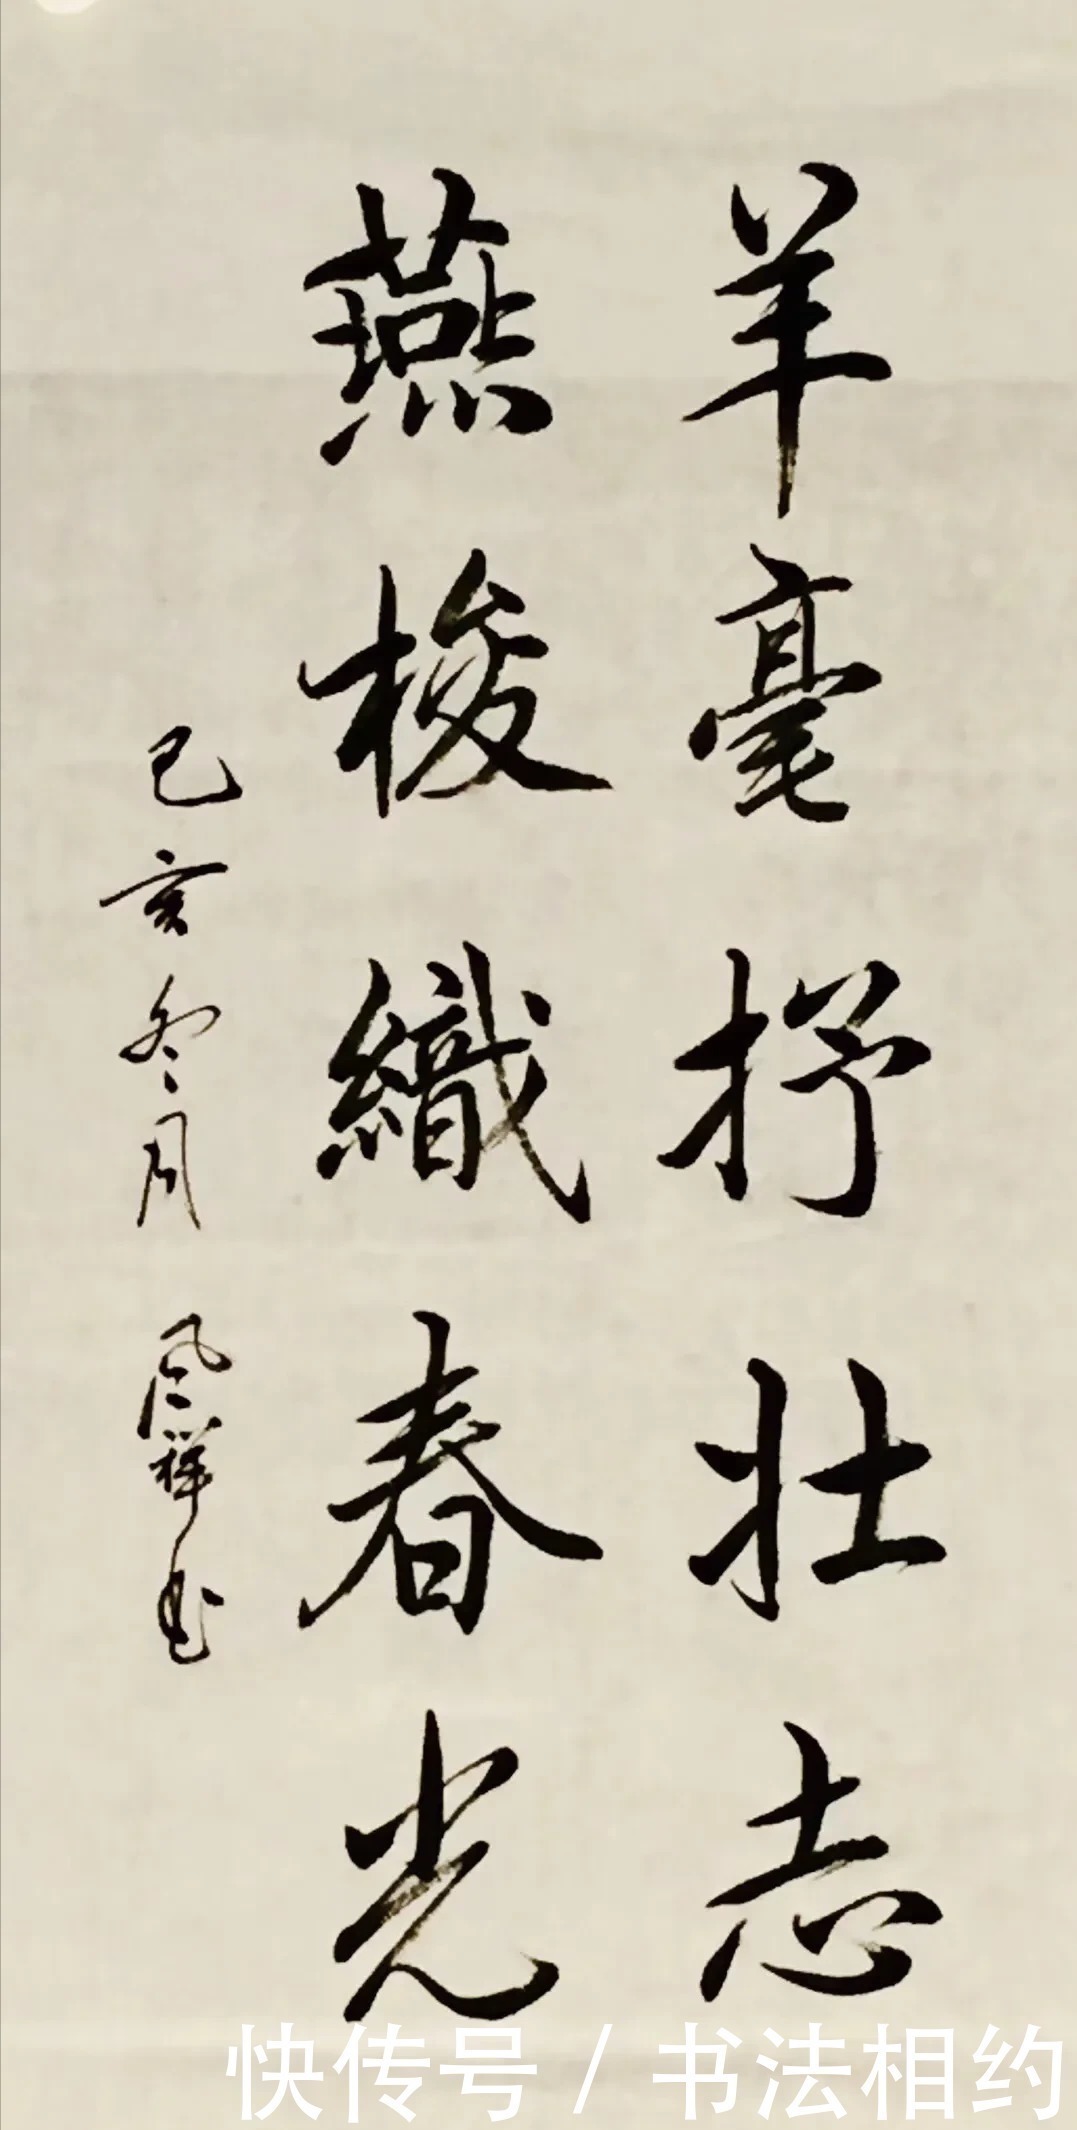 羊毫抒壮志
燕梭織春光
己亥冬月 风祥书
快传号 / 书法相约